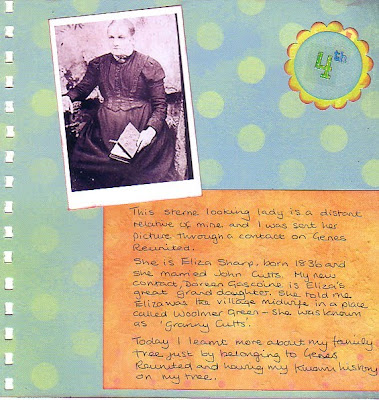 4th
This sterne looking lady is a distant
relative of mine and I was sent her
picture through a contact on Genes
Reunited.
She is Eliza Sharp, born 1836 and
she married John Cutts. My new
contact, Doreen Gascoine is Eliza's
great grand daughter. She told me
Eliza was the village midwife in a place
called Woolmer Green - she was known
as 'Granny Cutts.
Today I learnt more about my family
tree just by belonging to Genes
Reunited and having my known history
on my tree.